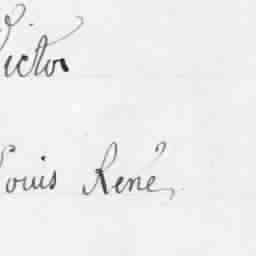 Victor
Louis René,